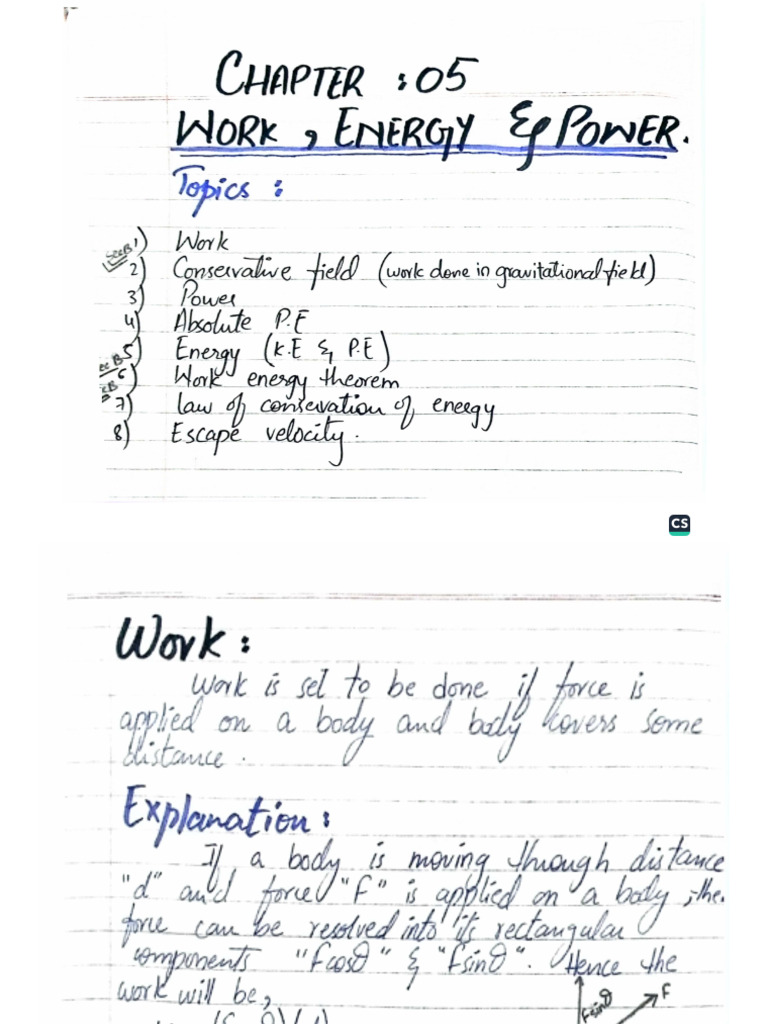 CHAPTER : 05
WORK, ENERGY & POWER.
Topics :
Sec B 1) Work
2) Conservative field (work done in gravitational field)
3) Power
4) Absolute P.E
5) Energy (K.E & P.E)
6) Work energy theorem
7) law of conservation of energy
8) Escape velocity.
CS
Work :
Work is set to be done if force is
applied on a body and body covers some
distance.
Explanation :
If a body is moving through distance
"d" and force "F" is applied on a body, the
force can be resolved into its rectangular
components "Fcosθ" & "Fsinθ". Hence the
work will be,
Fsinθ F